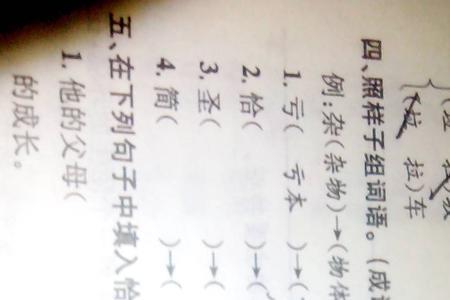 拉）车
四、照样子组词语。（成
例：杂（杂物）→（物体
1. 亏（ 亏本 ）→（
2. 恰（ ）→（
3. 圣（ ）→（
4. 简（ ）→（
五、在下列句子中填入恰
1. 他的父母（
的成长。